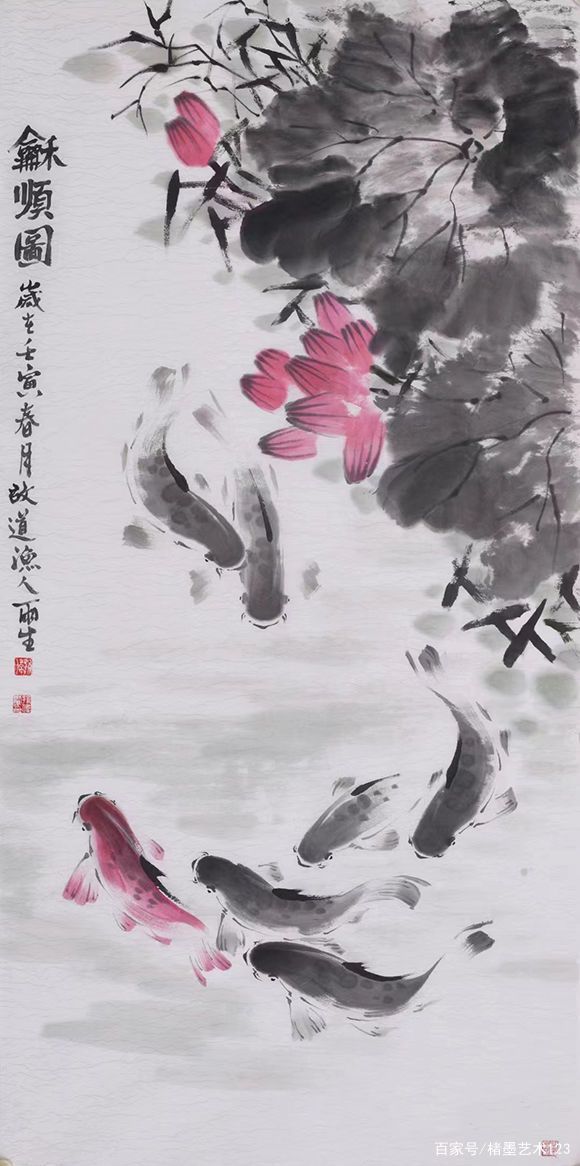 龢順圖
歲在壬寅春月故道漁人雨生
百家号/楮墨艺术123